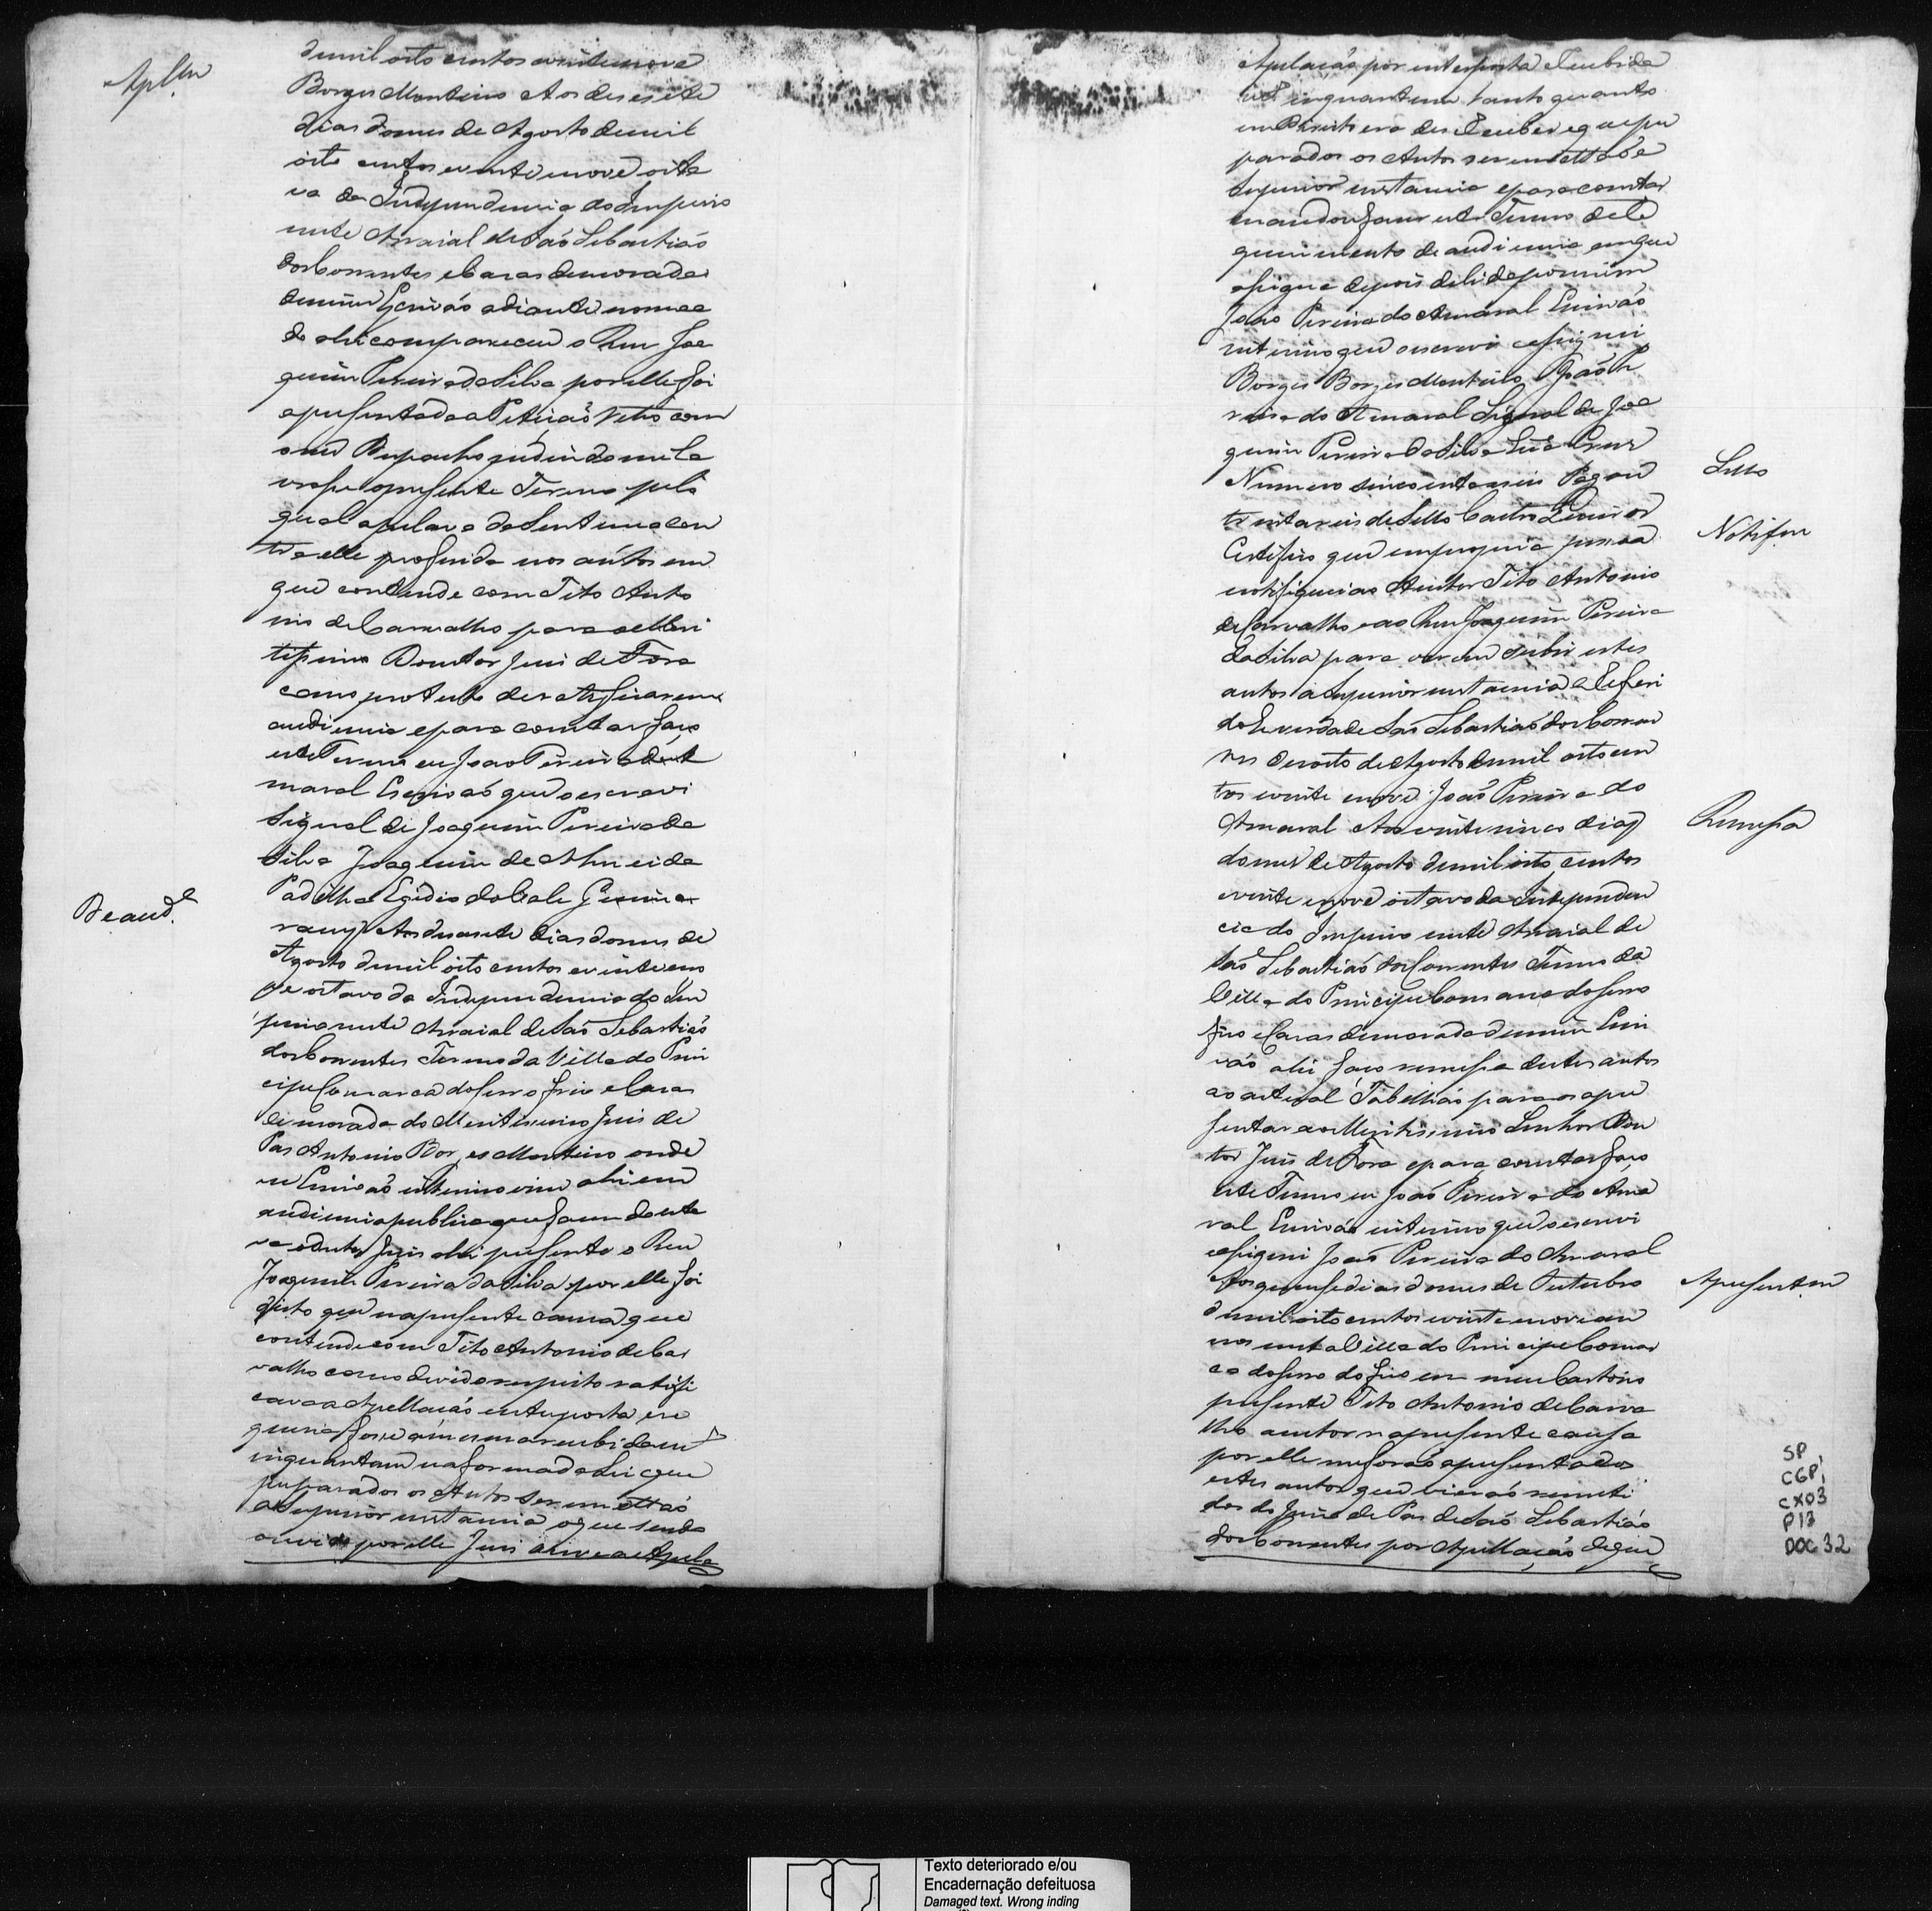 Apl.am
de mil oito centos evinte nove
Borges Monteiro Aos desesete
dias domes de Agosto demil
oito centos evinte enove oita
va da Independencia do Imperio
neste Arraial de São Sebastiaõ
dos Correntes eCazas demorada
demim Escrivaõ adiante nomea
do ahi compareceu o Reu Joa
quim Pereira da Silva por elle foi
apresentada a Petiçaõ retro com
o seu Despacho pedindo me la
vrasse o presente Termo pelo
qual apelava da Sentença con
tra elle proferida nos autos em
que contende com Tito Anto
nio de Carvalho para o Meri
tissimo Doutor Juis de Fora
com o protesto de ratificar em
audiencia epara constar faço
este Termo eu Joaõ Pereira do A
maral Escrivaõ que o escrevi
Signal de Joaquim Pereira da
Silva Joaquim de Almeida
Padilha Egidio do Vale Guima
raens Aos desasete dias domes de
Agosto de mil oito centos e vinte eno
ve oitavo da Independencia do Im
perio neste Arraial de Saõ Sebastiaõ
dos Correntes Termo da Villa do Prin
cipe Comarca do Serro frio e Cazas
de morada do Meritissimo Juis de
Pas Antonio Borges Monteiro onde
eu Escrivaõ interino vim ahi em
audiencia publica que fazendo esta
va odito Juis ahi presente o Reu
Joaquim Pereira da Silva por elle foi
dito que na presente cauza que
contende com Tito Antonio de Car
valho com o devido respeito ratifi
cava a Apellaçaõ interposta, ere
queria fosse a mesma recebida em
inquantum na forma da Lei e que
preparados os Autos se remettaõ
a Superior instancia o que sendo
ouvido por elle Juis ouve a Apela
De aud.e
Apelaçaõ por interposta e recebida
in inquantum tanto quanto
em Direito era de receber e que pre
parados os Autos se remettaõ a
Superior instancia epara constar
mandou fazer este Termo de re
querimento de audiencia em que
assigna depois de lido por mim
Joaõ Pereira do Amaral Escrivaõ
interino que o escrevi e assignei
Borges Borges Monteiro Joaõ Pe
reira do Amaral Signal de Joa
quim Pereira da Silva
Numero sincoenta e seis Pagou
trinta reis de Sello
Certifico que em propria pessoa
notifiquei ao Autor Tito Antonio
de Carvalho e ao Reu Joaquim Pereira
da Silva para verem subir estes
autos a Superior instancia e refiri
do he verdade Saõ Sebastiaõ dos Corren
tes desoito de Agosto de mil oito cen
tos evinte enove Joaõ Pereira do
Amaral Aos vinte sinco dias
do mes de Agosto de mil oito centos
evinte enove oitavo da Independen
cia do Imperio neste Arraial de
Saõ Sebastiaõ dos Correntes Termo da
Villa do Principe Comarca do Serro
frio e Cazas demorada demim Escri
vaõ ahi faço remessa destes autos
ao actual Tabelliaõ para os apre
sentar ao Meritissimo Senhor Dou
tor Juis de Fora epara constar faço
este Termo eu Joaõ Pereira do Ama
ral Escrivaõ interino que o escrevi
e assignei Joaõ Pereira do Amaral
Aos quinse dias do mes de Outubro
de mil oito centos evinte enove an
nos nesta Villa do Principe Comar
ca do Serro do frio em meu Cartorio
presente Tito Antonio de Carva
lho autor na presente causa
por elle me foraõ apresentados
estes autos que vieraõ remeti
dos do Juizo de Pas de Saõ Sebastiaõ
dos Correntes por Apellaçaõ de que
Sello
Notifcm
Remessa
Apresentam
SP
CGP1
CX03
P13
DOC 32
Texto deteriorado e/ou
Encadernação defeituosa
Damaged text. Wrong inding